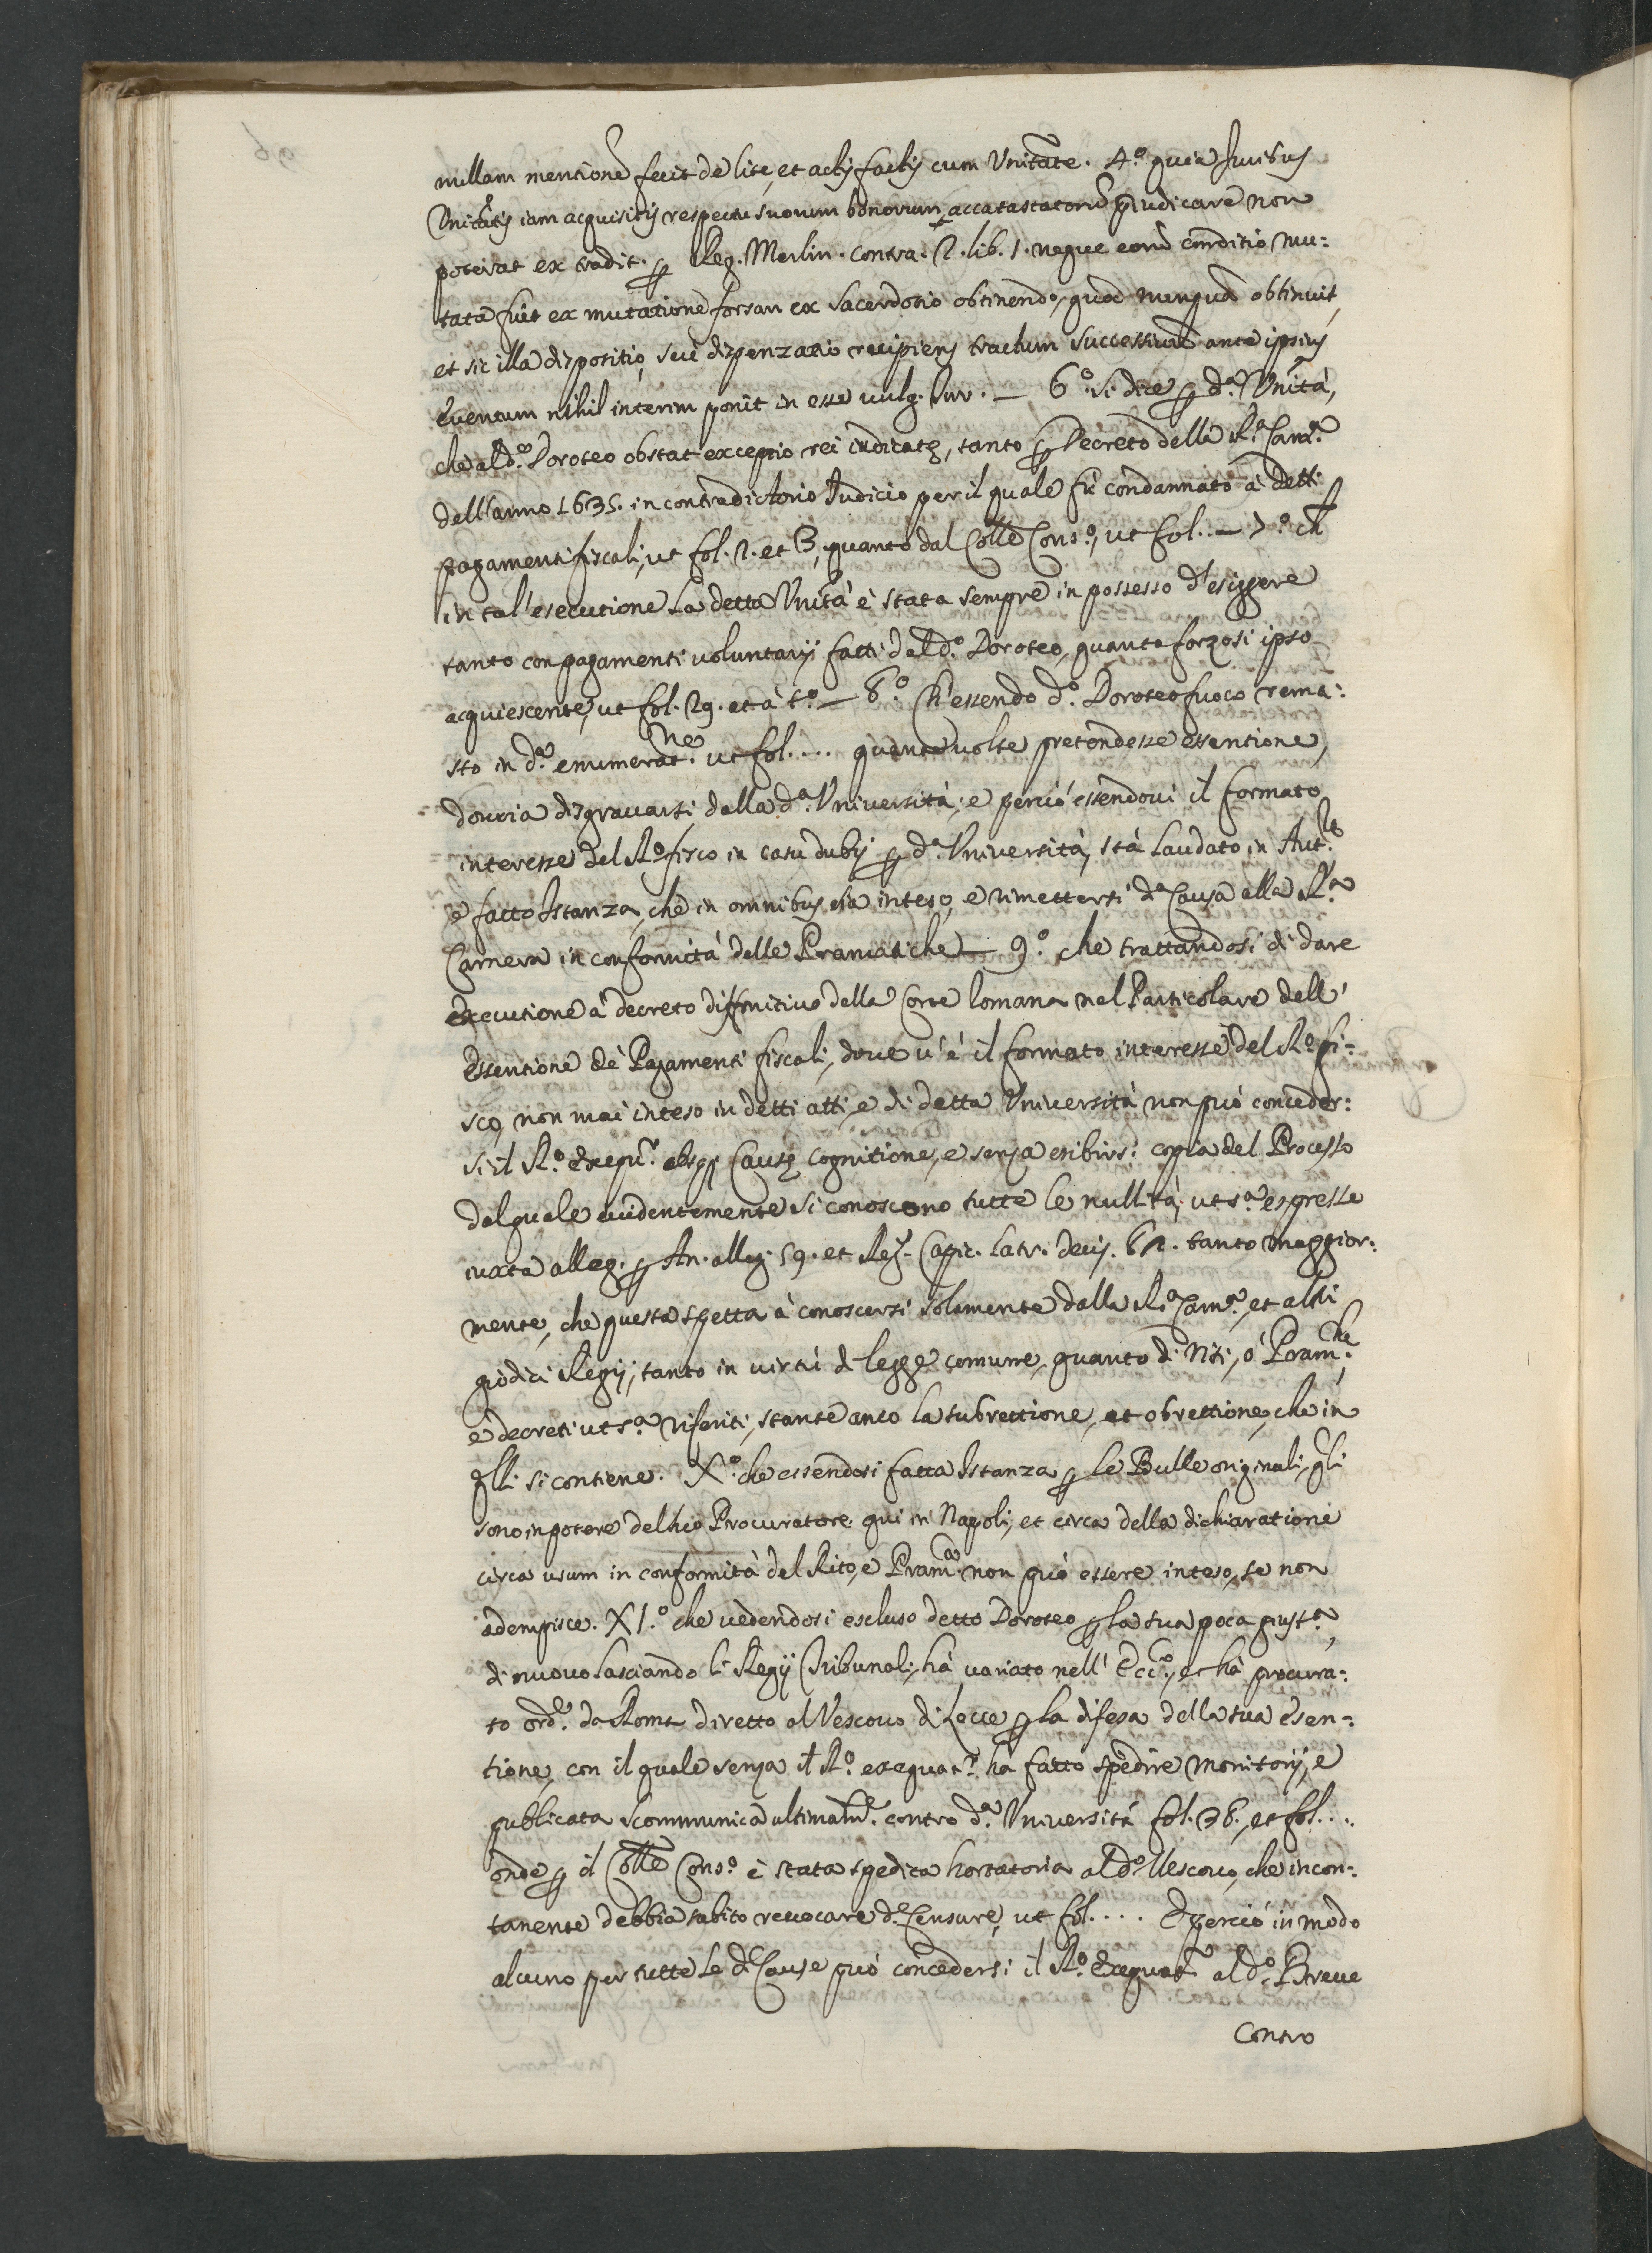 nullam mentione fecit de lite, et actis factis cum Unitate. 4.º quia Iuribus
Unitatis iam acquisitis respectu suorum bonorum accatastatorũ p̱iudicare non
poterat ex tradit. p̱ Reg. Merlin. contra. 2. lib. 1. neque eorũ conditio mu:
tata fuit ex mutatione forsan ex sacerdotio obtinendo, quod nunquã obtinuit,
et sic illa dispositio, seu dispenzatio recipiens tractum successivũ ante ipsius
eventum nihil interim ponit in esse vulg. Iur. — 6.º si dice p̱ d.ª Unità,
che al d.º Doroteo obstat exceptio rei iudicatę, tanto p̱ Decreto della R.ª Cam.ª
dell'anno 1635. in contradictorio Iudicio per il quale fù condannato à detti
pagamenti fiscali, ut fol. 2. et 3, quanto dal Colle Cons.º, ut fol. — 7.º ch
in tal' esecutione la detta Unità è stata sempre in possesso d'esiggere
tanto con pagamenti voluntarij fatti dal d.º Doroteo, quanto forzosi ipso
acquiescente, ut fol. 29. et à t.º — 8.º Ch'essendo d.º Doroteo fuoco rema:
sto in d.ª enumerat.ne ut fol. .... quante volte pretendesse essentione,
douria disgrauarsi dalla d.ª Università; e perciò essendoui il formato
interesse del R.º fisco in casu dubij p̱ d.ª Università, stà laudato in Aut.re
e fatto Istanza, che in omnibus sia inteso, e rimettersi d.ª Causa alla R.ª
Camera in conformità delle Pramatiche — 9.º che trattandosi di dare
executione à decreto diffinitiuo della Corte Romana nel Particolare dell'
Essentione dè Pagamenti fiscali, doue u'è il formato interesse del R.º fi:
sco, non mai inteso in detti atti, e di detta Università non può conceder:
si il R.º exequr. absq; Causę cognitione, e senza esibirsi copia del Processo
dal quale euidentemente si conoscono tutte le nullità, ut s.ª espresse
iuxta alleg. p̱ An. alleg. 59. et Reg. Capic. Latr. decis. 62. tanto maggior:
mente, che questa spetta à conoscersi solamente dalla R.ª Cam.ª, et altri
giodici Regij, tanto in virtù di legge comune, quanto di Riti, ò Pram.che,
e decreti ut s.ª riferiti, stante anco la subrettione, et obrettione, che in
q̃lli si contiene. X.º che essendosi fatta Istanza p̱ le Bulle originali, q̃li
sono in potere del suo Procuratore qui in Napoli, et circa della dichiaratione
circa usum in conformità del Rito, e Pram.ca non può essere inteso, se non
adempisce. XI.º che vedendosi escluso detto Doroteo p̱ la sua poca giust.ª,
di nuouo lasciando li Regij Tribunali, hà variato nell' Ecc.º, et hà procura:
to ord.e da Roma diretto al Vescouo di Lecce p̱ la difesa della sua esen:
tione, con il quale senza il R.º exequat.r ha fatto spedire monitorij, e
publicata scommunica ultimam.te contro d.ª Università fol. 38. et fol. ...
onde p̱ il Colle Cons.º è stata spedita hortatoria al d.º Vescouo, che incon:
tanente debbia subito reuocare d.e Censure, ut fol. .... E perciò in modo
alcuno per tutte le d.e Cause può concedersi il R.º Exequat.r al d.º Breue
Contro